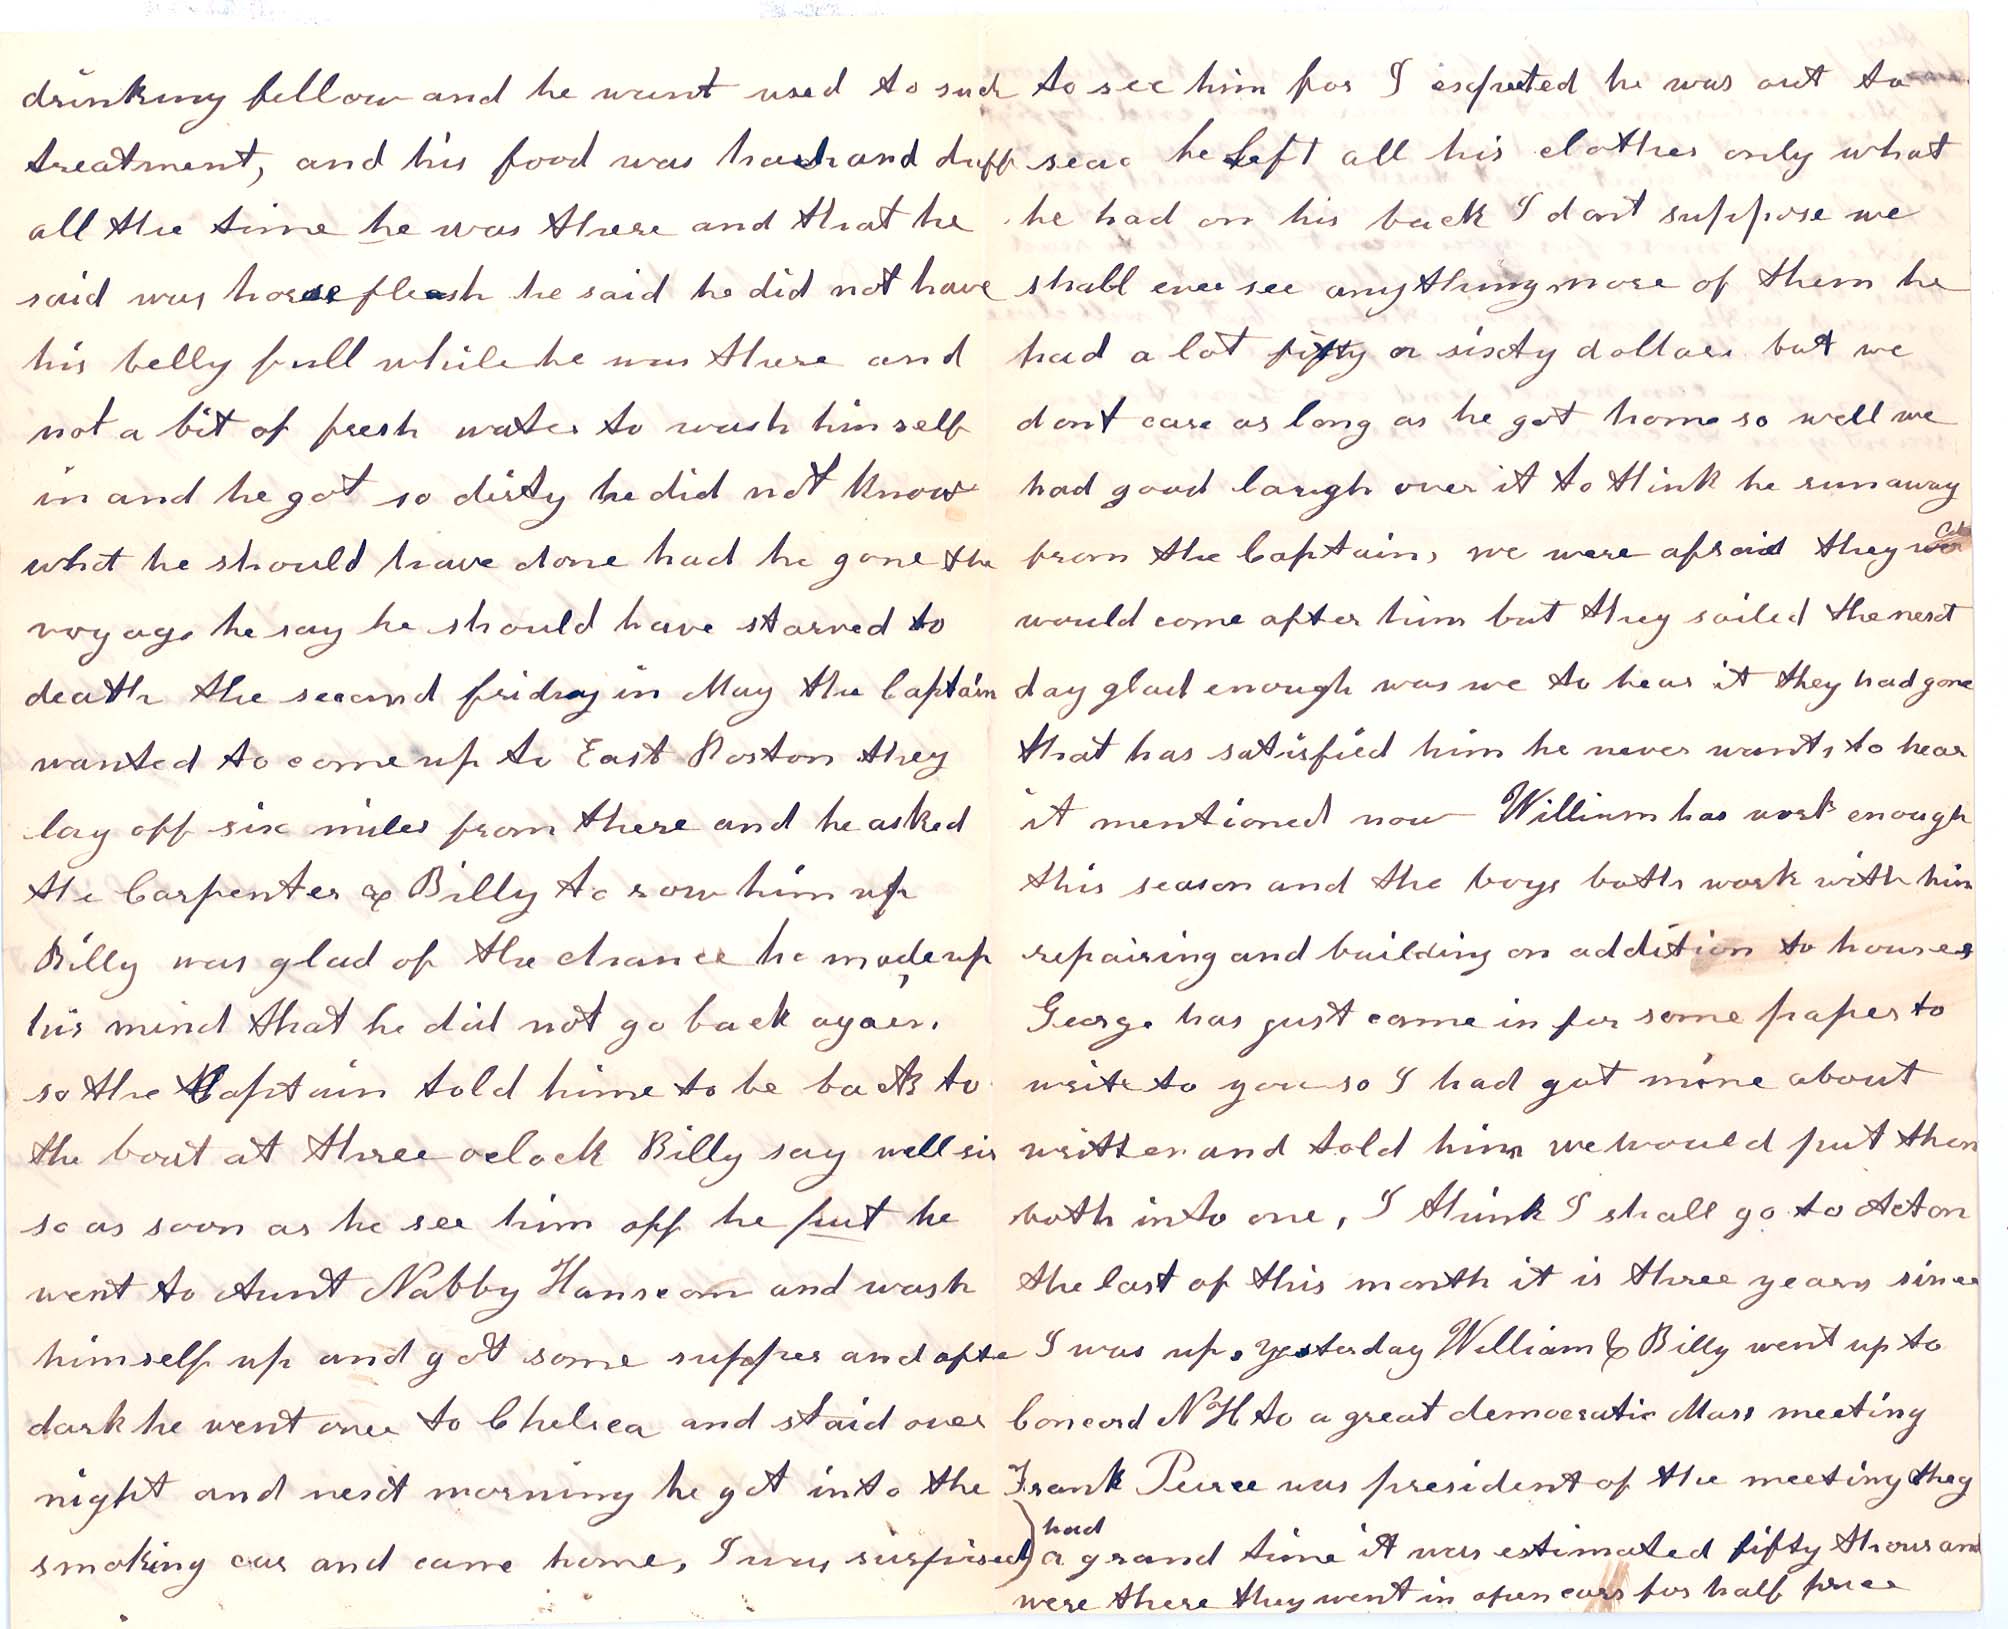 drinking fellow and he want used to such
treatment, and his food was hash and duff
all the time he was there and that he
said was horse flesh he said he did not have
his belly full while he was there and
not a bit of fresh water to wash himself
in and he got so dirty he did not know
what he should have done had he gone the
voyage he say he should have starved to
death the second friday in May the Captain
wanted to come up to East Boston they
lay off six miles from there and he asked
the Carpenter & Billy to row him up
Billy was glad of the chance he made up
his mind that he did not go back again.
so the Captain told hime to be back to
the boat at three oclock Billy say well sir
so as soon as he see him off he put he
went to Aunt Nabby Hanscom and wash
himself up and got some supper and afte
dark he went over to Chelsea and staid over
night and next morning he got into the
smoking car and came home, I was surprised
to see him for I expected he was out to
sea he left all his clothes only what
he had on his back I dont suppose we
shall ever see anything more of them he
had a lot fifty or sixty dollars but we
dont care as long as he got home so well we
had good laugh over it to think he run away
from the Captain, we were afraid they
would come after him but they sailed the next
day glad enough was we to hear it they had gone
that has satisfied him he never wants to hear
it mentioned now William has work enough
this season and the boys both work with him
repairing and building on addition to houses
George has just come in for some paper to
write to you so I had got mine about
written and told him we would put them
both into one, I think I shall go to Acton
the last of this month it is three years since
I was up. yesterday William & Billy went up to
Concord N H to a great democratic Mass meeting
Frank Peirce was president of the meeting they
had
a grand time it was estimated fifty thousand
were there they went in open cars for half price